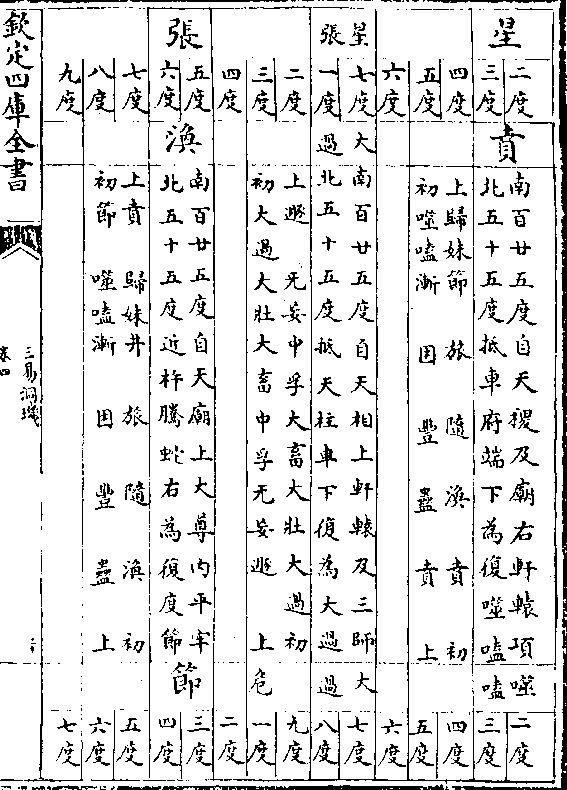 星
二度
三度
四度
五度
六度
星張
七度
一度
二度
三度
四度
張
五度
六度
七度
八度
九度
賁
南百廿五度自天稷及廟右軒轅項噬
北五十五度抵車府端下為復噬嗑嗑
上歸妹節 旅 隨 渙 賁 初
初噬嗑漸 困 豐 蠱 賁 上
大過
南百廿五度自天相上軒轅及三師大
北五十五度抵天柱車下復為大過過
上遯 无妄中孚大畜大壯大過初
初大過大壯大畜中孚无妄遯 上
渙
南百廿五度自天廟上大尊內平牢
北五十五度近杵騰蛇右為復度節
節
上賁 歸妹井 旅 隨 渙 初
初節 噬嗑漸 困 豐 蠱 上
二度
三度
四度
五度
六度
七度
八度
九度
危
一度
二度
三度
四度
五度
六度
七度
欽定四庫全書
三易洞璣
卷四